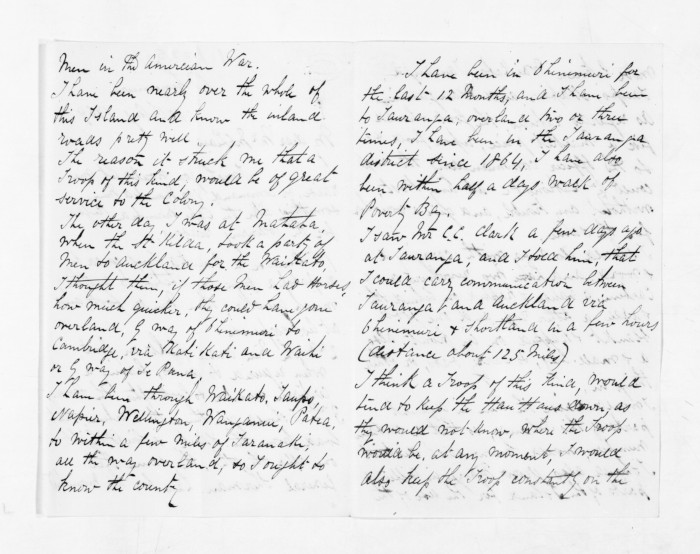 Men in the Amercian War.
I have been nearly over the whole of
this Island and know the inland
roads pretty well.
The reason it struck me that a
Troop of this kind, would be of great
service to the Colony.
The other day I was at Matata,
when the St Kilda, took a party of
Men to Auckland for the Waikato
I thought then, if those Men had Horses,
how much quicker, they could have gone
overland, by way of Ohinemuri to
Cambridge, via Kati Kati and Waihi
or by way of Te Papa.
I have been through Waikato, Taupo,
Napier, Wellington, Wanganui, Patea,
to within a few miles of Taranaki,
all the way overland, so I ought to
know the county
I have been in Ohinemuri for
the last 12 Months, and I have been
to Tauranga, overland two or three
times, I have been in the Tauranga
district since 1864, I have also
been within half a days walk of
Poverty Bay.
I saw Mr C.C. Clark a few days ago
at Tauranga, and I told him, that
I could carry communication between
Tauranga and Auckland via
Ohinemuri & Shortland in a few hours
(distance about 125 Miles)
I think a Troop of this kind, would
tend to keep the Hau Haus down, as
they would not know, where the Troop
would be, at any moment, I would
also keep the Troop constantly on the